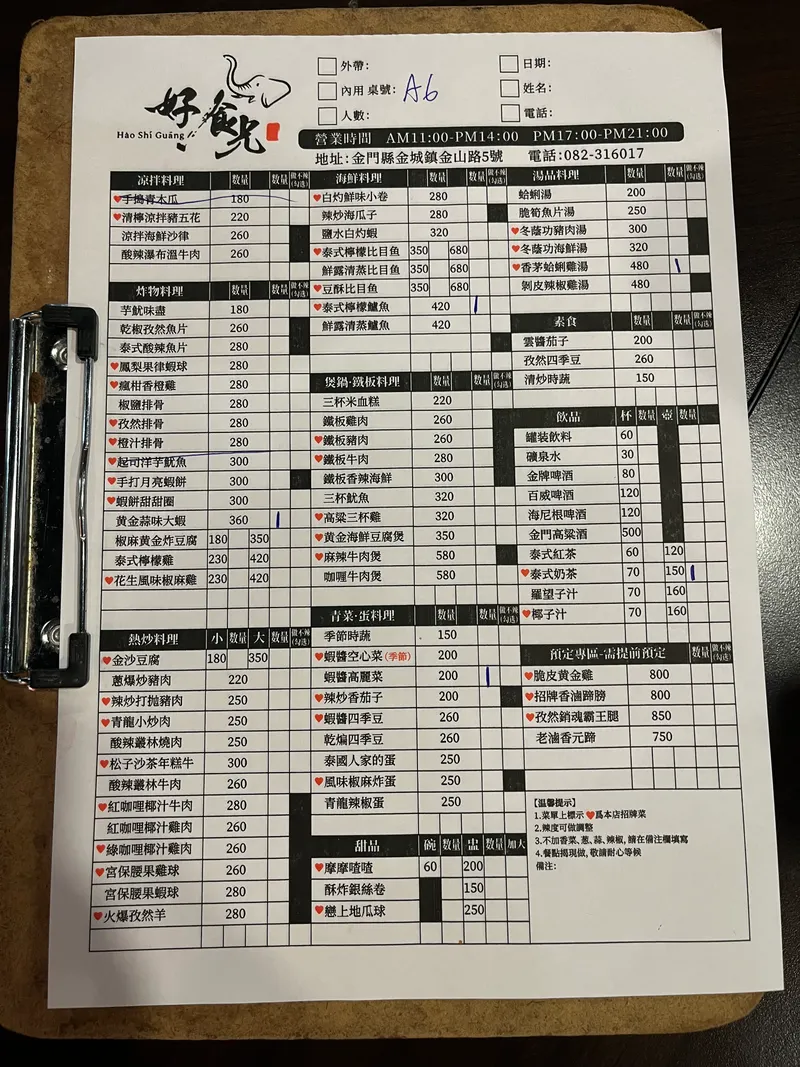 好食光
Hǎo Shí Guāng
外帶:
日期:
內用 桌號: A6
姓名:
人數:
電話:
營業時間 AM11:00-PM14:00 PM17:00-PM21:00
地址:金門縣金城鎮金山路5號 電話:082-316017
涼拌料理 數量 數量 做不辣(勾選)
♥手搗青木瓜 180
♥清檸涼拌豬五花 220
涼拌海鮮沙律 260
酸辣瀑布溫牛肉 260
炸物料理 數量 數量 做不辣(勾選)
芋魷味盡 180
乾椒孜然魚片 260
泰式酸辣魚片 280
♥鳳梨果律蝦球 280
♥瘋柑香橙雞 280
椒鹽排骨 280
♥孜然排骨 280
♥橙汁排骨 280
♥起司洋芋魷魚 300
♥手打月亮蝦餅 300
♥蝦餅甜甜圈 300
黄金蒜味大蝦 360
椒麻黄金炸豆腐 180 350
泰式檸檬雞 230 420
♥花生風味椒麻雞 230 420
熱炒料理 小 數量 大 數量 做不辣(勾選)
♥金沙豆腐 180 350
蔥爆炒豬肉 220
♥辣炒打拋豬肉 250
♥青龍小炒肉 250
酸辣叢林燒肉 250
♥松子沙茶年糕牛 300
酸辣叢林牛肉 260
♥紅咖哩椰汁牛肉 280
紅咖哩椰汁雞肉 260
♥綠咖哩椰汁雞肉 260
♥宮保腰果雞球 260
宮保腰果蝦球 280
♥火爆孜然羊 280
海鮮料理 數量 數量 做不辣(勾選)
♥白灼鮮味小卷 280
辣炒海瓜子 280
鹽水白灼蝦 320
♥泰式檸檬比目魚 350 680
鮮露清蒸比目魚 350 680
♥豆酥比目魚 350 680
♥泰式檸檬鱸魚 420
鮮露清蒸鱸魚 420
煲鍋·鐵板料理 數量 數量 做不辣(勾選)
三杯米血糕 220
鐵板雞肉 260
♥鐵板豬肉 260
♥鐵板牛肉 280
鐵板香辣海鮮 300
三杯魷魚 320
♥高粱三杯雞 320
♥黄金海鮮豆腐煲 350
♥麻辣牛肉煲 580
咖喱牛肉煲 580
青菜·蛋料理 數量 數量 做不辣(勾選)
季節時蔬 150
♥蝦醬空心菜(季節) 200
蝦醬高麗菜 200
♥辣炒香茄子 200
♥蝦醬四季豆 260
乾煸四季豆 260
泰國人家的蛋 250
♥風味椒麻炸蛋 250
青龍辣椒蛋 250
甜品 碗 數量 盅 數量 加大
♥摩摩喳喳 60 200
酥炸銀絲卷 150
♥戀上地瓜球 250
湯品料理 數量 數量 做不辣(勾選)
蛤蜊湯 200
脆筍魚片湯 250
♥冬蔭功豬肉湯 300
♥冬蔭功海鮮湯 320
♥香茅蛤蜊雞湯 480
剝皮辣椒雞湯 480
素食 數量 數量 做不辣(勾選)
雲醬茄子 200
孜然四季豆 260
清炒時蔬 150
飲品 杯 數量 壺 數量
罐裝飲料 60
礦泉水 30
金牌啤酒 80
百威啤酒 120
海尼根啤酒 120
金門高粱酒 500
泰式紅茶 60 120
♥泰式奶茶 70 150
羅望子汁 70 160
♥椰子汁 70 160
預定專區-需提前預定 數量 做不辣(勾選)
♥脆皮黄金雞 800
♥招牌香滷蹄膀 800
♥孜然銷魂霸王腿 850
老滷香元蹄 750
【溫馨提示】
1.菜單上標示♥爲本店招牌菜
2.辣度可做調整
3.不加香菜、葱、蒜、辣椒, 請在備注欄填寫
4.餐點揭現做, 敬請耐心等候
備注: